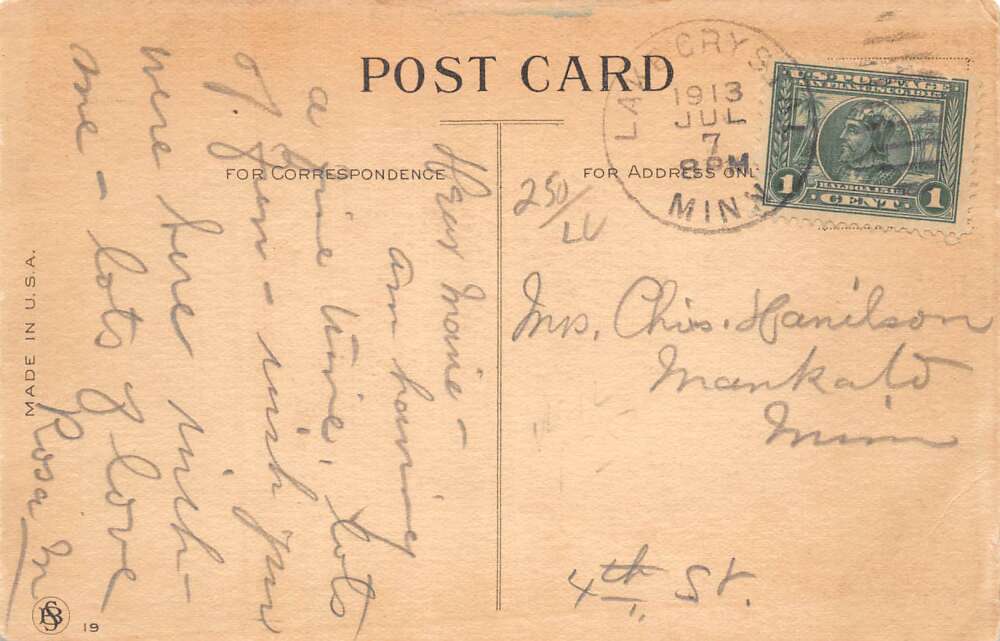 POST CARD
FOR CORRESPONDENCE
FOR ADDRESS ONL
LAK CRYS L
1913
JUL
7
8 PM
MINN
U.S. POSTAGE
SAN FRANCISCO 1915
BALBOA 1513
1 CENT 1
250/
LV
Dear Mamie –
am having
a fine time, lots
of fun – wish you
were here with
me – lots of love
Rosa M
Mrs. Chris. Hanilson
Mankato
Minn
4th St.
MADE IN U.S.A.
19